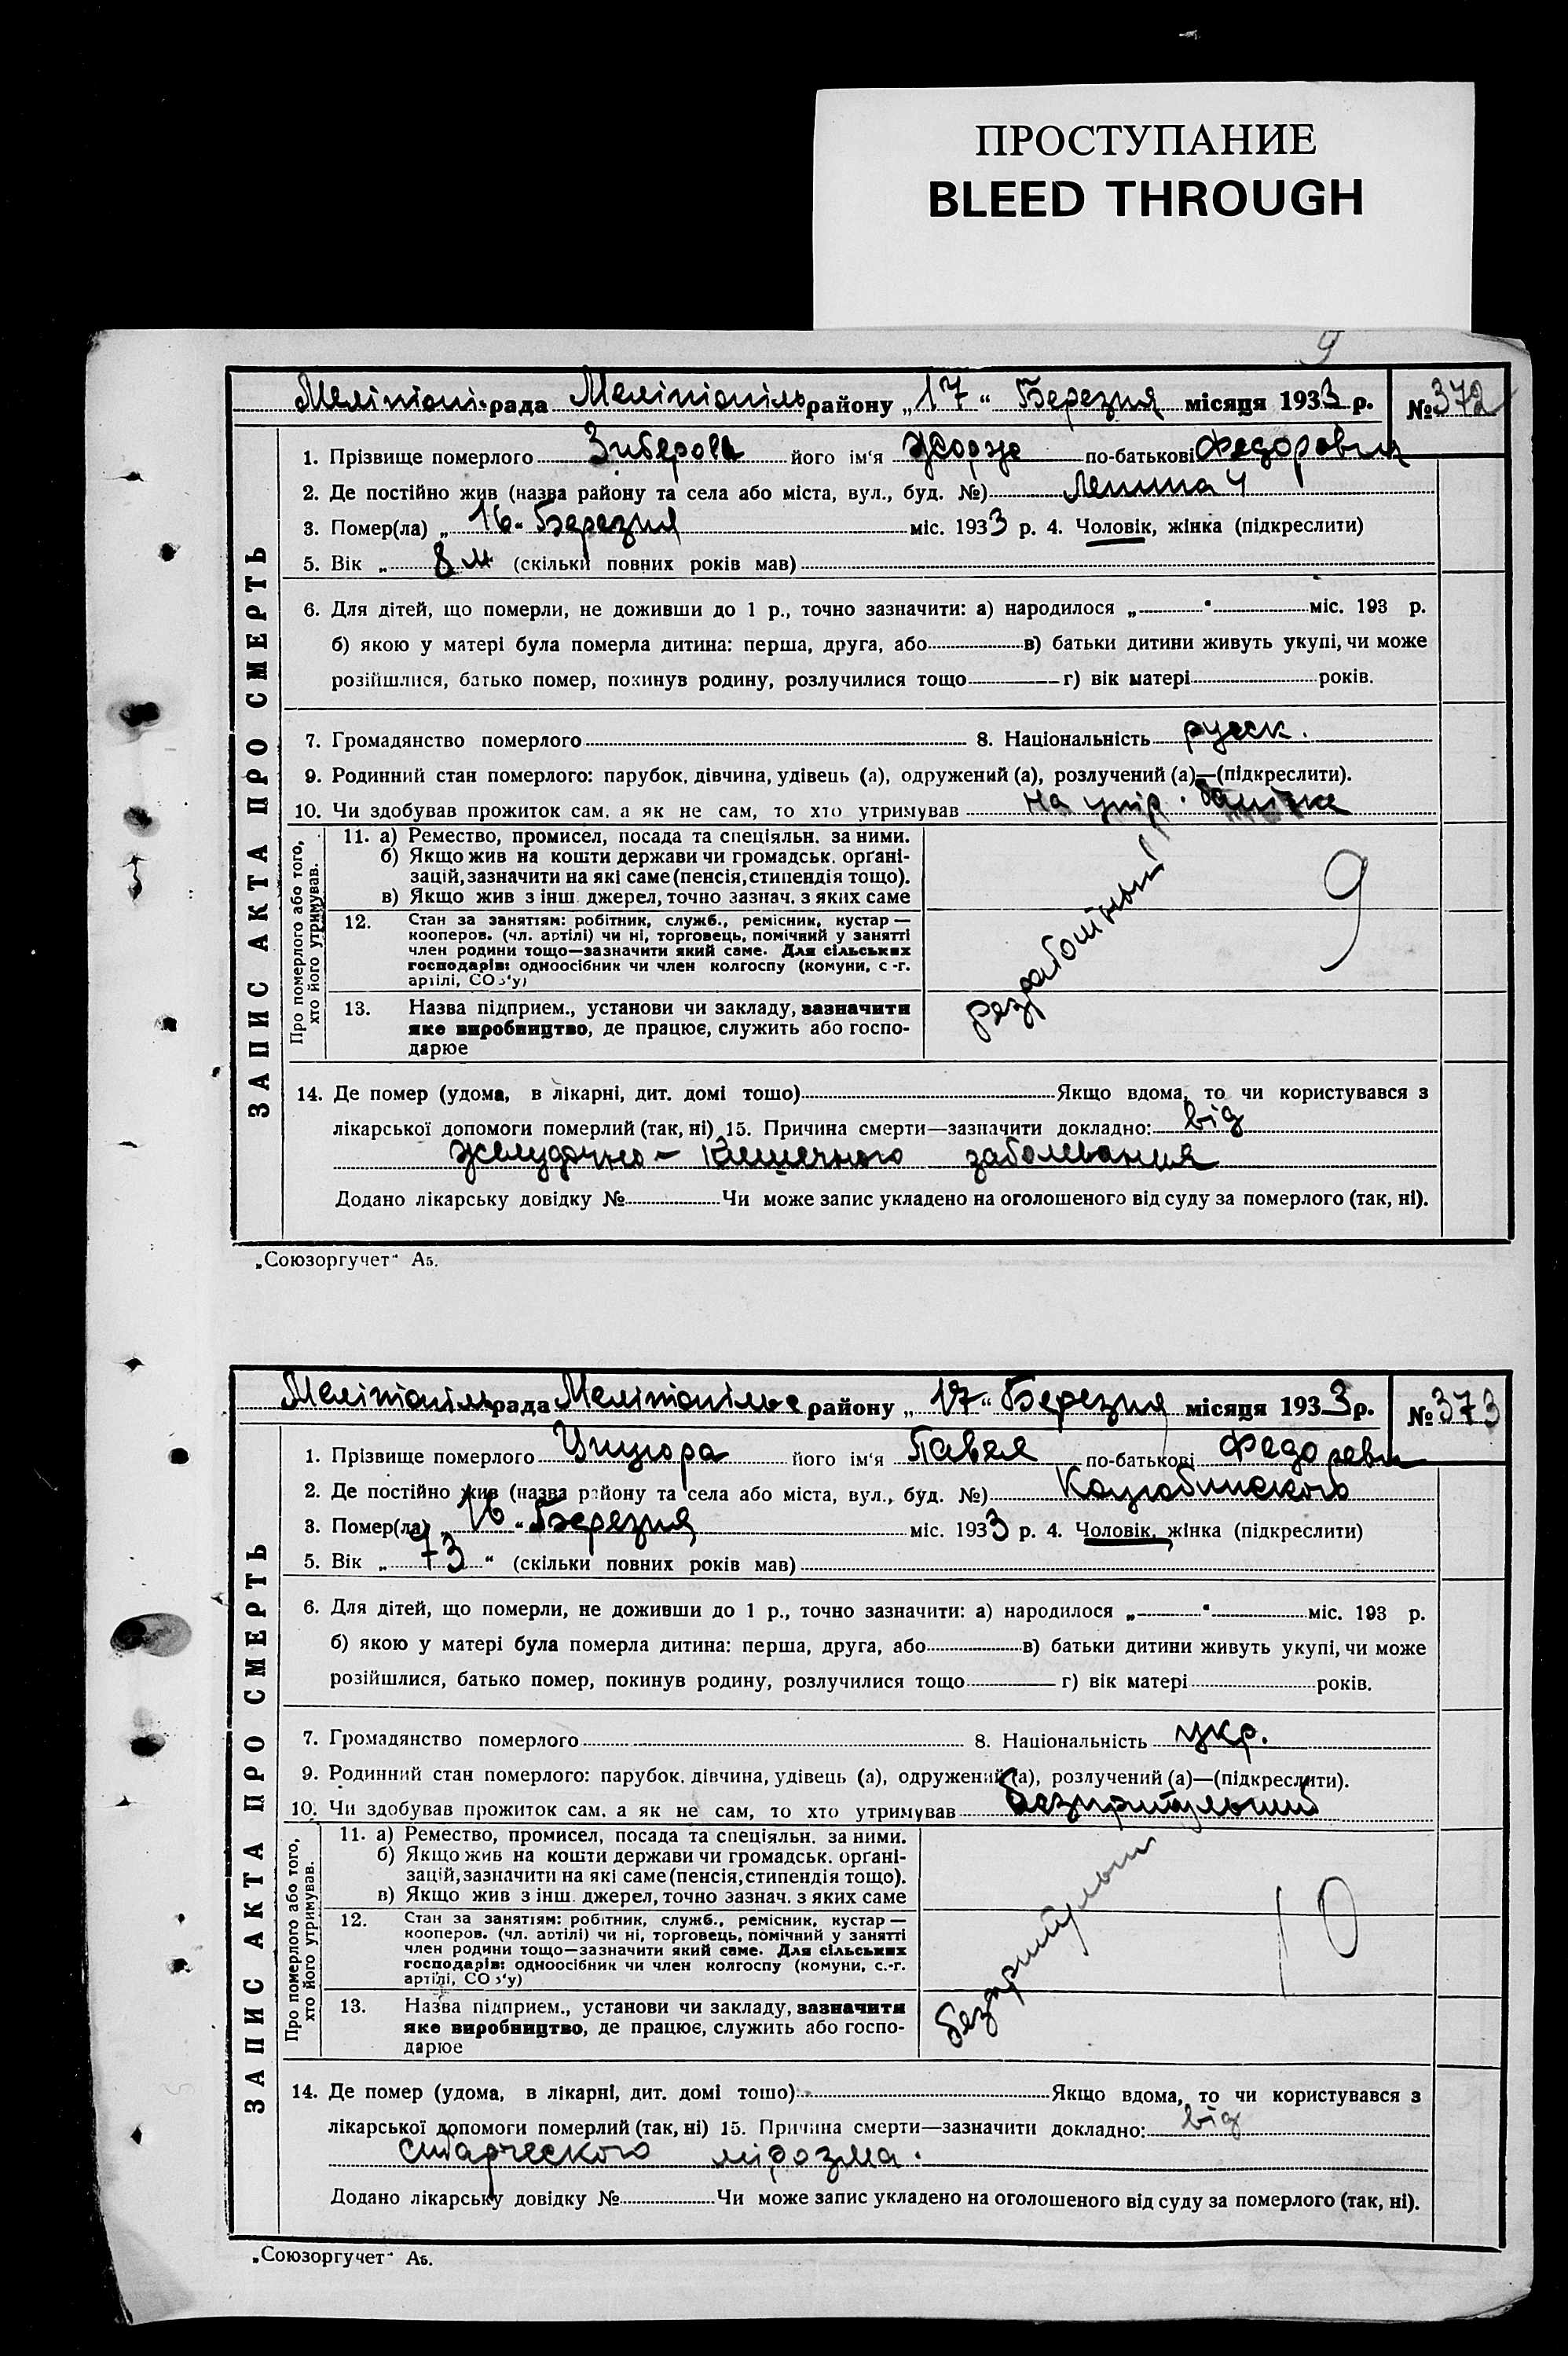 ПРОСТУПАНИЕ
BLEED THROUGH
9
Мелітопіл. рада Мелітопіль району „17“ Березня місяця 1933 р. № 372
1. Прізвище померлого його ім'я Жорже по-батькові Федорович
2. Де постійно жив (назва району та села або міста, вул., буд. №) Ленина 4
3. Помер(ла) „16“ Березня міс. 1933 р. 4. Чоловік, жінка (підкреслити)
5. Вік „ 8 м (скільки повних років мав)
6. Для дітей, що померли, не доживши до 1 р., точно зазначити: а) народилося „ “ міс. 193 р.
б) якою у матері була померла дитина: перша, друга, або в) батьки дитини живуть укупі, чи може
розійшлися, батько помер, покинув родину, розлучилися тощо г) вік матері років.
7. Громадянство померлого 8. Національність русск.
9. Родинний стан померлого: парубок, дівчина, удівець (а), одружений (а), розлучений (а)—(підкреслити).
10. Чи здобував прожиток сам, а як не сам, то хто утримував на утр. батька
ЗАПИС АКТА ПРО СМЕРТЬ
Про померлого або того, хто його утримував.
11. а) Ремество, промисел, посада та спеціяльн. за ними.
б) Якщо жив на кошти держави чи громадськ. орґані-
зацій, зазначити на які саме (пенсія, стипендія тощо).
в) Якщо жив з інш. джерел, точно зазнач. з яких саме
9
12. Стан за заняттям: робітник, служб., ремісник, кустар —
кооперов. (чл. артілі) чи ні, торговець, помічний у занятті
член родини тощо—зазначити який саме. Для сільських
господарів: одноосібник чи член колгоспу (комуни, с.-г.
артілі, СОЗ'у)
13. Назва підприєм., установи чи закладу, зазначити
яке виробництво, де працює, служить або госпо-
дарює
14. Де помер (удома, в лікарні, дит. домі тощо) Якщо вдома, то чи користувався з
лікарської допомоги померлий (так, ні) 15. Причина смерти—зазначити докладно: від
желудочно-кишечного заболевания
Додано лікарську довідку № Чи може запис укладено на оголошеного від суду за померлого (так, ні).
„Союзоргучет“ А5.
Мелітопіль рада Мелітопільс району „17“ Березня місяця 1933 р. № 373
1. Прізвище померлого його ім'я Павел по-батькові Федоревич
2. Де постійно жив (назва району та села або міста, вул., буд. №) Коцюбинского
3. Помер(ла) „16“ Березня міс. 1933 р. 4. Чоловік, жінка (підкреслити)
5. Вік „ 73 “ (скільки повних років мав)
6. Для дітей, що померли, не доживши до 1 р., точно зазначити: а) народилося „ “ міс. 193 р.
б) якою у матері була померла дитина: перша, друга, або в) батьки дитини живуть укупі, чи може
розійшлися, батько помер, покинув родину, розлучилися тощо г) вік матері років.
7. Громадянство померлого 8. Національність укр.
9. Родинний стан померлого: парубок, дівчина, удівець (а), одружений (а), розлучений (а)—(підкреслити).
10. Чи здобував прожиток сам, а як не сам, то хто утримував безпритульний
ЗАПИС АКТА ПРО СМЕРТЬ
Про померлого або того, хто його утримував.
11. а) Ремество, промисел, посада та спеціяльн. за ними.
б) Якщо жив на кошти держави чи громадськ. орґані-
зацій, зазначити на які саме (пенсія, стипендія тощо).
в) Якщо жив з інш. джерел, точно зазнач. з яких саме
безпритульн 10
12. Стан за заняттям: робітник, служб., ремісник, кустар —
кооперов. (чл. артілі) чи ні, торговець, помічний у занятті
член родини тощо—зазначити який саме. Для сільських
господарів: одноосібник чи член колгоспу (комуни, с.-г.
артілі, СОЗ'у)
13. Назва підприєм., установи чи закладу, зазначити
яке виробництво, де працює, служить або госпо-
дарює
14. Де помер (удома, в лікарні, дит. домі тощо) Якщо вдома, то чи користувався з
лікарської допомоги померлий (так, ні) 15. Причина смерти—зазначити докладно: від
старческого
Додано лікарську довідку № Чи може запис укладено на оголошеного від суду за померлого (так, ні).
„Союзоргучет“ А5.